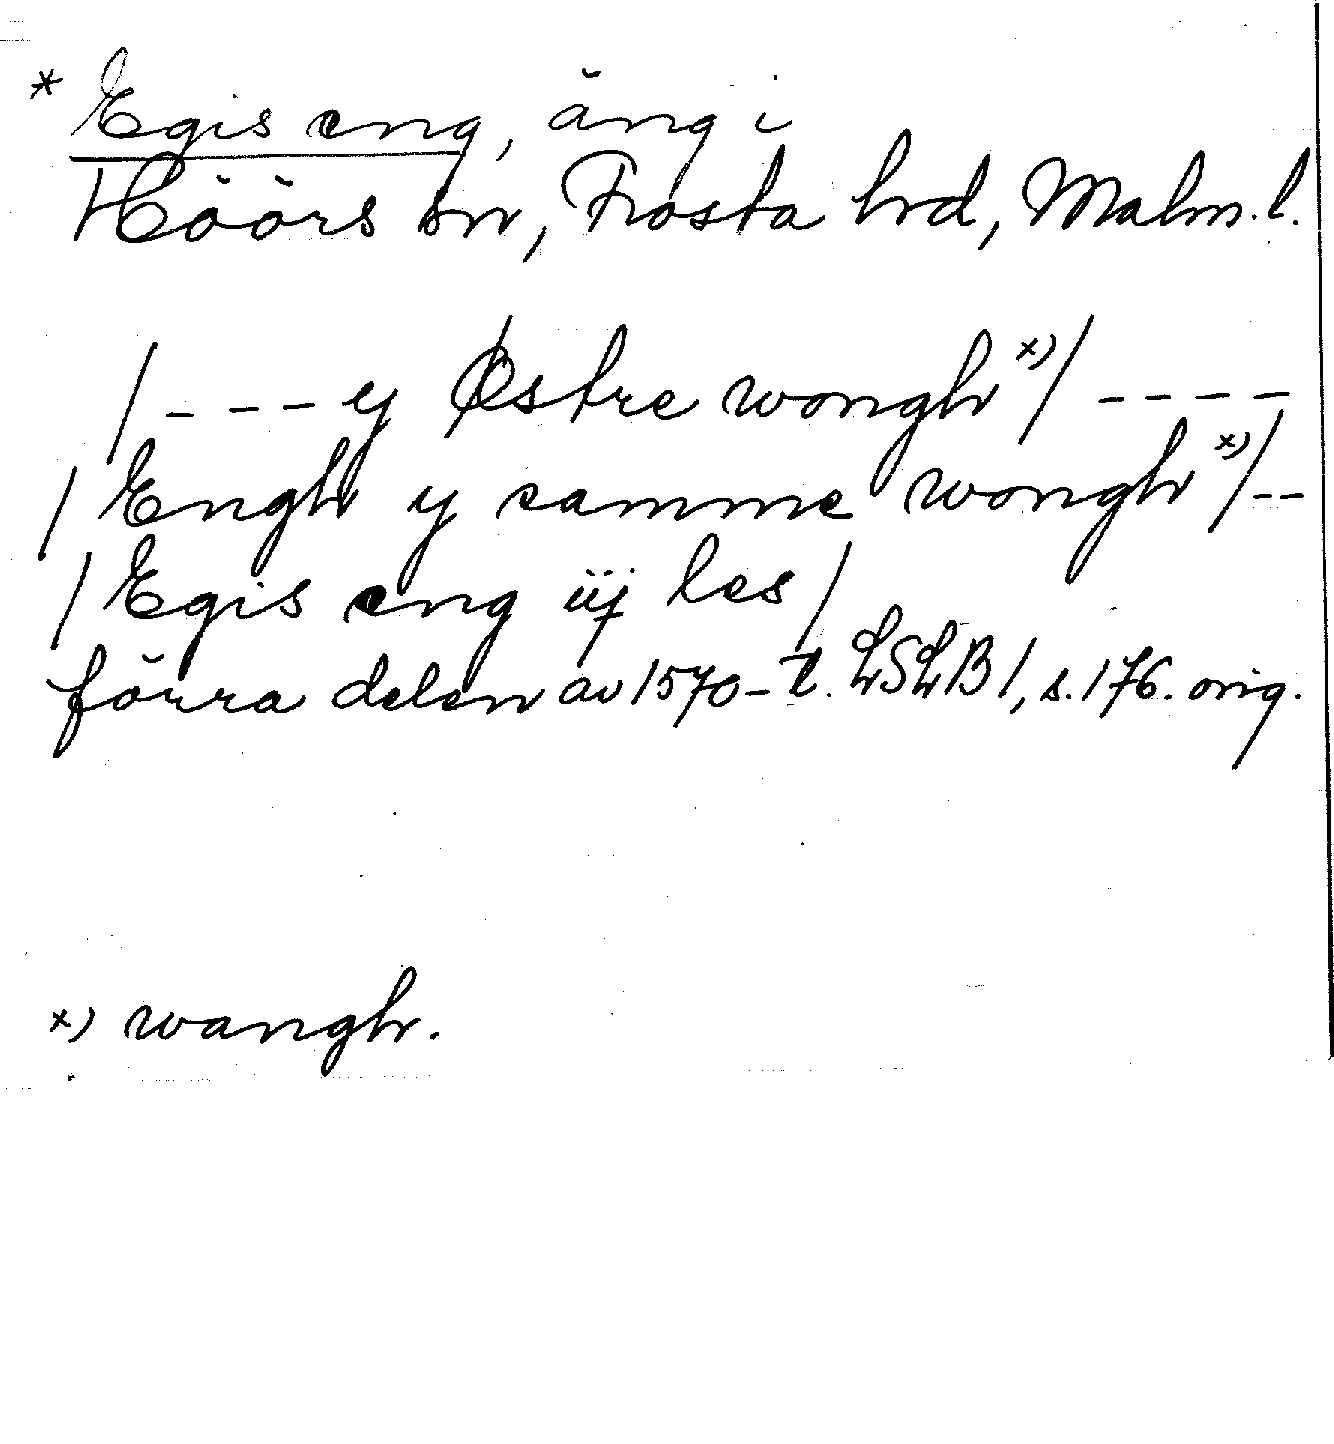 * Egis eng, äng i
Höörs sn, Frosta hrd, Malm. l.
/ - - - y Østre wongh x) / - - - -
/ Engh y samme wongh x) / - -
/ Egis eng iij les /
förra delen av 1570-t. LSLB 1, s. 176. orig.
x) wangh.